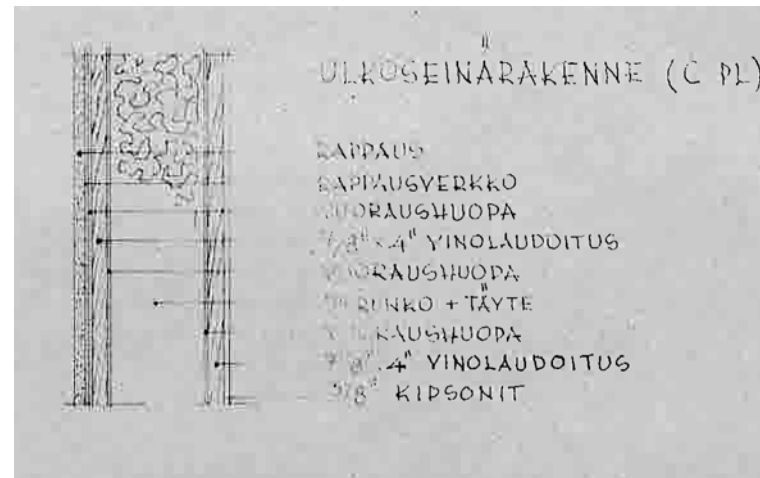 ULKOSEINÄRAKENNE (C PL)
RAPPAUS
RAPPAUSVERKKO
VUORAUSHUOPA
7/8" x 4" VINOLAUDOITUS
VUORAUSHUOPA
RUNKO + TÄYTE
VUORAUSHUOPA
7/8" x 4" VINOLAUDOITUS
KIPSONIT